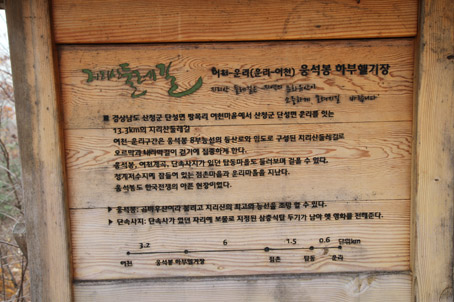 지리산둘레길
어천-운리(운리-어천) 웅석봉 하부헬기장
경상남도 산청군 단성면 방목리 어천마을에서 산청군 단성면 운리를 잇는
13.3km의 지리산둘레길
어천-운리구간은 웅석봉 8부능선의 등산로와 임도로 구성된 지리산둘레길로
오르막과 내리막길이 걷기에 집중하게 한다.
웅석봉, 어천계곡, 단속사지가 있던 탑동마을도 둘러보며 걸을 수 있다.
청계저수지에 잠들어 있는 점촌마을과 운리마을을 지난다.
웅석봉도 한국전쟁의 아픈 현장이었다.
▶ 웅석봉: 곰바우산이라 불리고 지리산의 최고의 능선을 조망 할 수 있다.
▶ 단속사지: 단속사가 있던 자리에 보물로 지정된 삼층석탑 두기가 남아 옛 영화를 전해준다.
3.2 6 1.5 0.6 단위km
어천 웅석봉 하부헬기장 점촌 탑동 운리